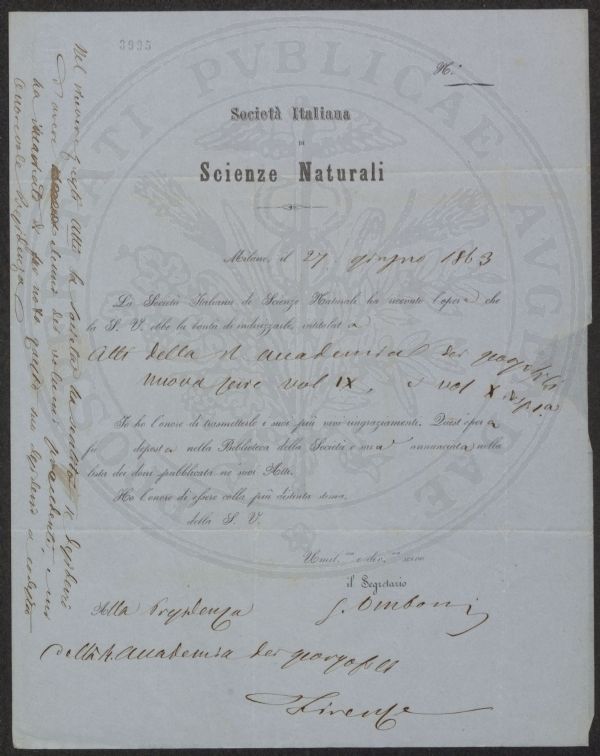 3995
N.°
Società Italiana
DI
Scienze Naturali
Milano, il 27 giugno 1863
La Società Italiana di Scienze Naturali ha ricevuto l'opera che
la S. V. ebbe la bontà di indirizzarle, intitolata
Atti della R. accademia dei georgofili
nuova serie vol IX, e vol X disp. 1.a
Io ho l'onore di trasmetterle i suoi più vivi ringraziamenti. Quest'opera
fu deposta nella Biblioteca della Società e verrà annunciata nella
lista dei doni pubblicata ne' suoi Atti.
Ho l'onore di essere colla più distinta stima
della S. V.
Umil.mo e div.mo servo
il Segretario
G. Omboni
Alla Presidenza
della R. Accademia dei georgofili
Firenze
Nel ricevere questi Atti la società ha
di avere dei volumi precedenti, e mi
ha di far noto questo suo desiderio a codesta
onorevole Presidenza
PUBLICAE